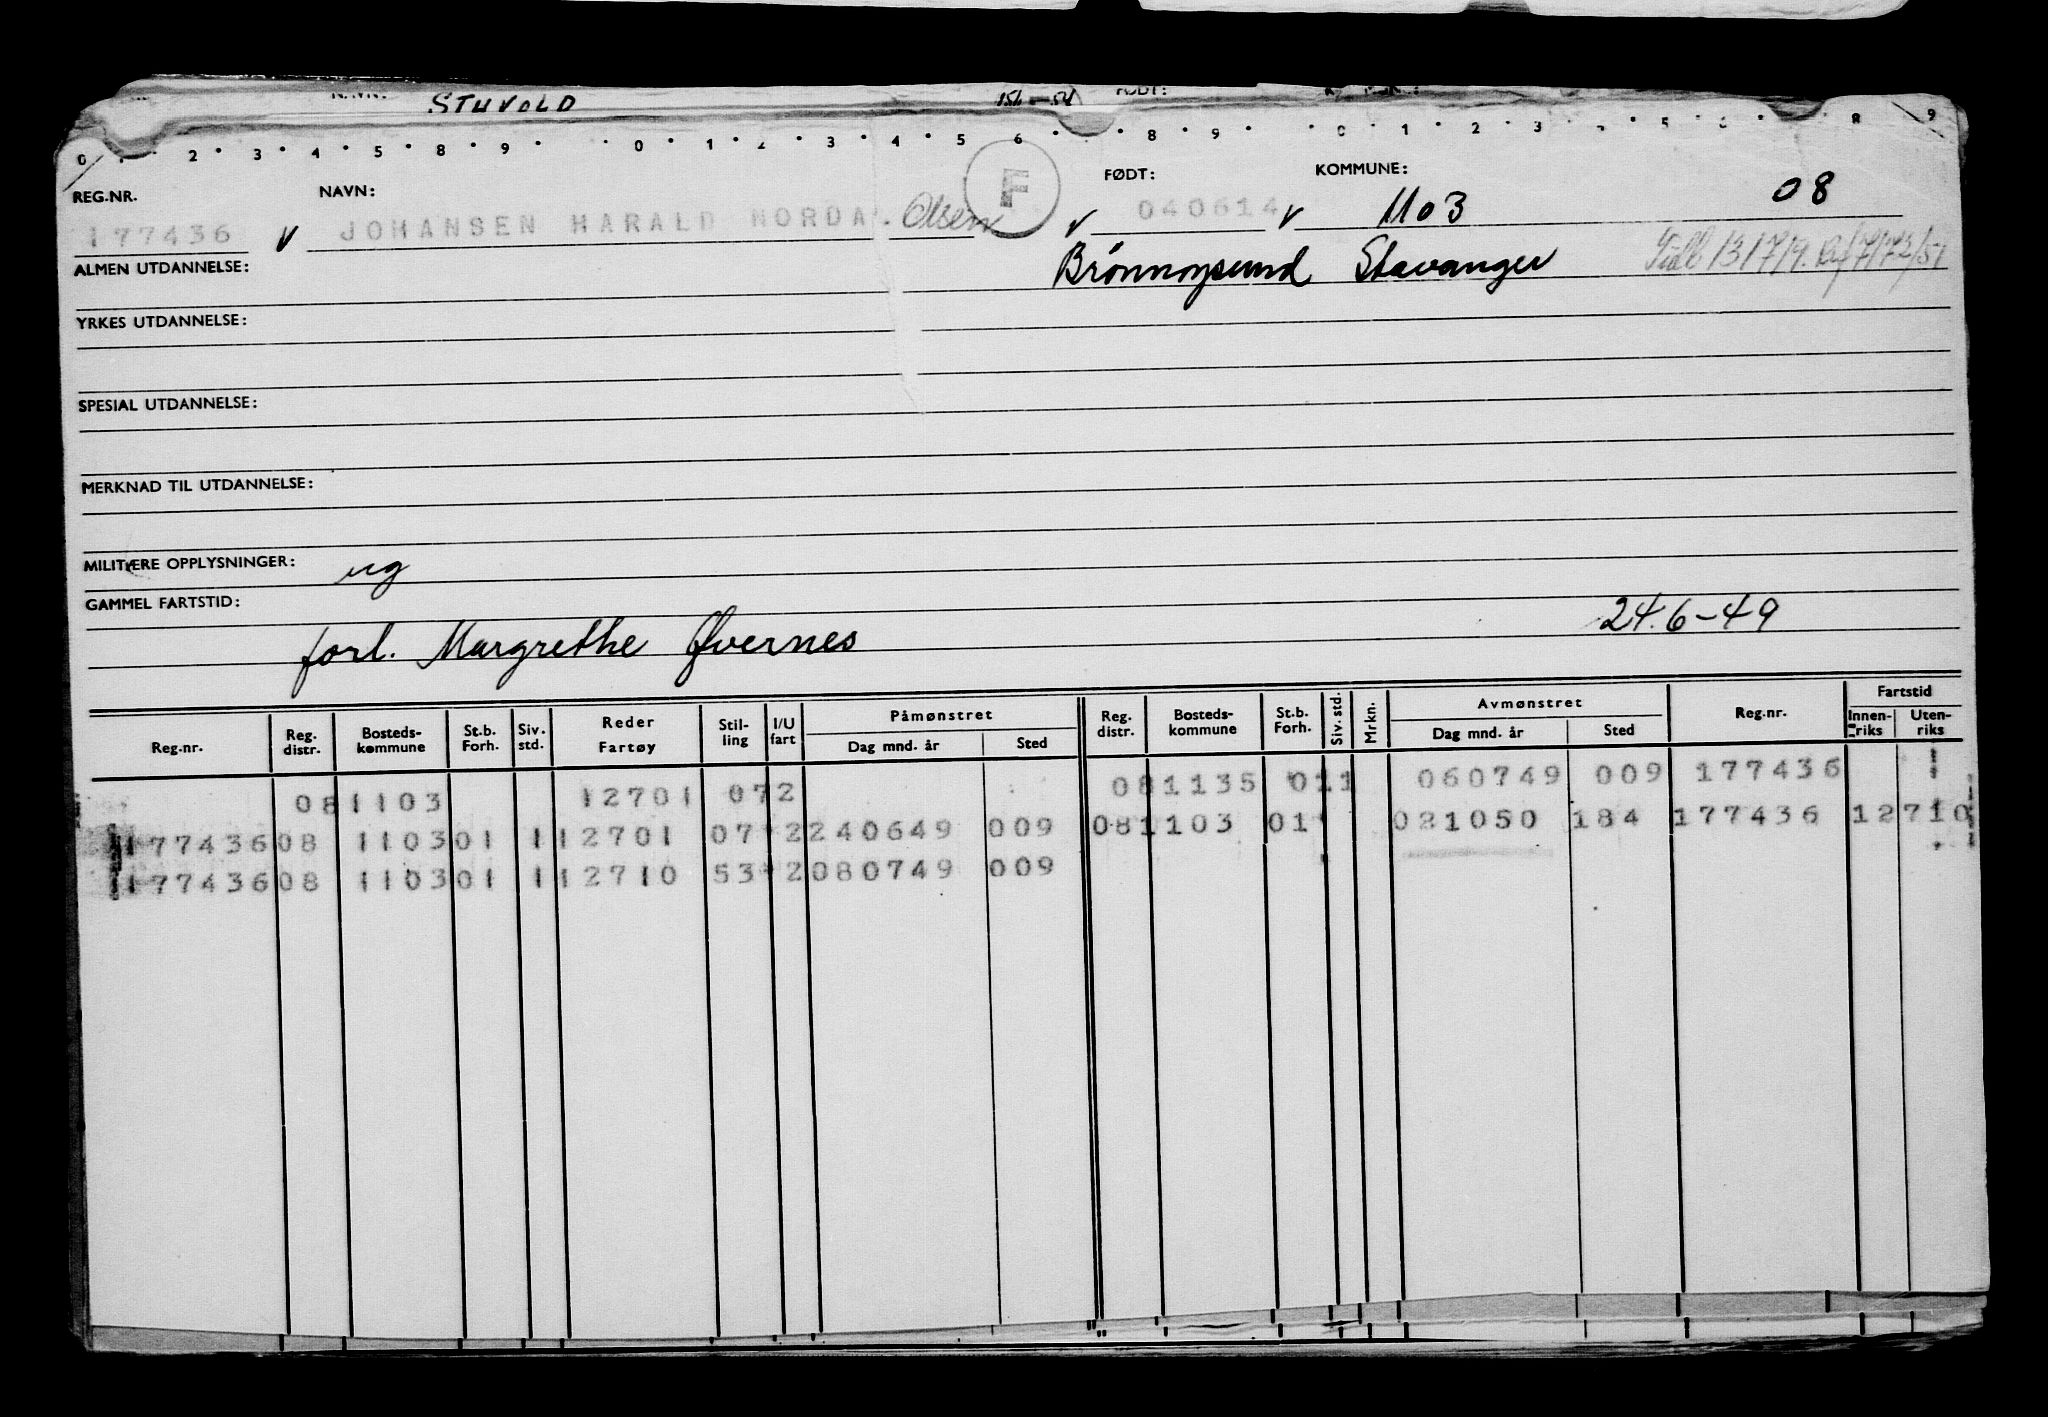 STUVOLD
REG.NR. NAVN: F FØDT: KOMMUNE: 08
177436 v JOHANSEN HARALD NORDA. Olsen v 040614 v 1103
ALMEN UTDANNELSE: Brønnøysund Stavanger
YRKES UTDANNELSE:
SPESIAL UTDANNELSE:
MERKNAD TIL UTDANNELSE:
MILITÆRE OPPLYSNINGER: ug
GAMMEL FARTSTID:
forl. Margrethe Øvernes 24.6-49
Reg.nr. Reg. distr. Bosteds-kommune St.b. Forh. Siv. std. Reder Fartøy Stil-ling I/U fart Påmønstret Dag mnd. år Sted Reg. distr. Bosteds-kommune St.b. Forh. Siv. std. Mrkn. Avmønstret Dag mnd. år Sted Reg.nr. Fartstid Innen-riks Uten-riks
08 1103 12701 07 2 08 1135 01 1 060749 009 177436 1
177436 08 1103 01 1 12701 07 2 240649 009 08 1103 01 021050 184 177436 12710
177436 08 1103 01 1 12710 53 2 080749 009